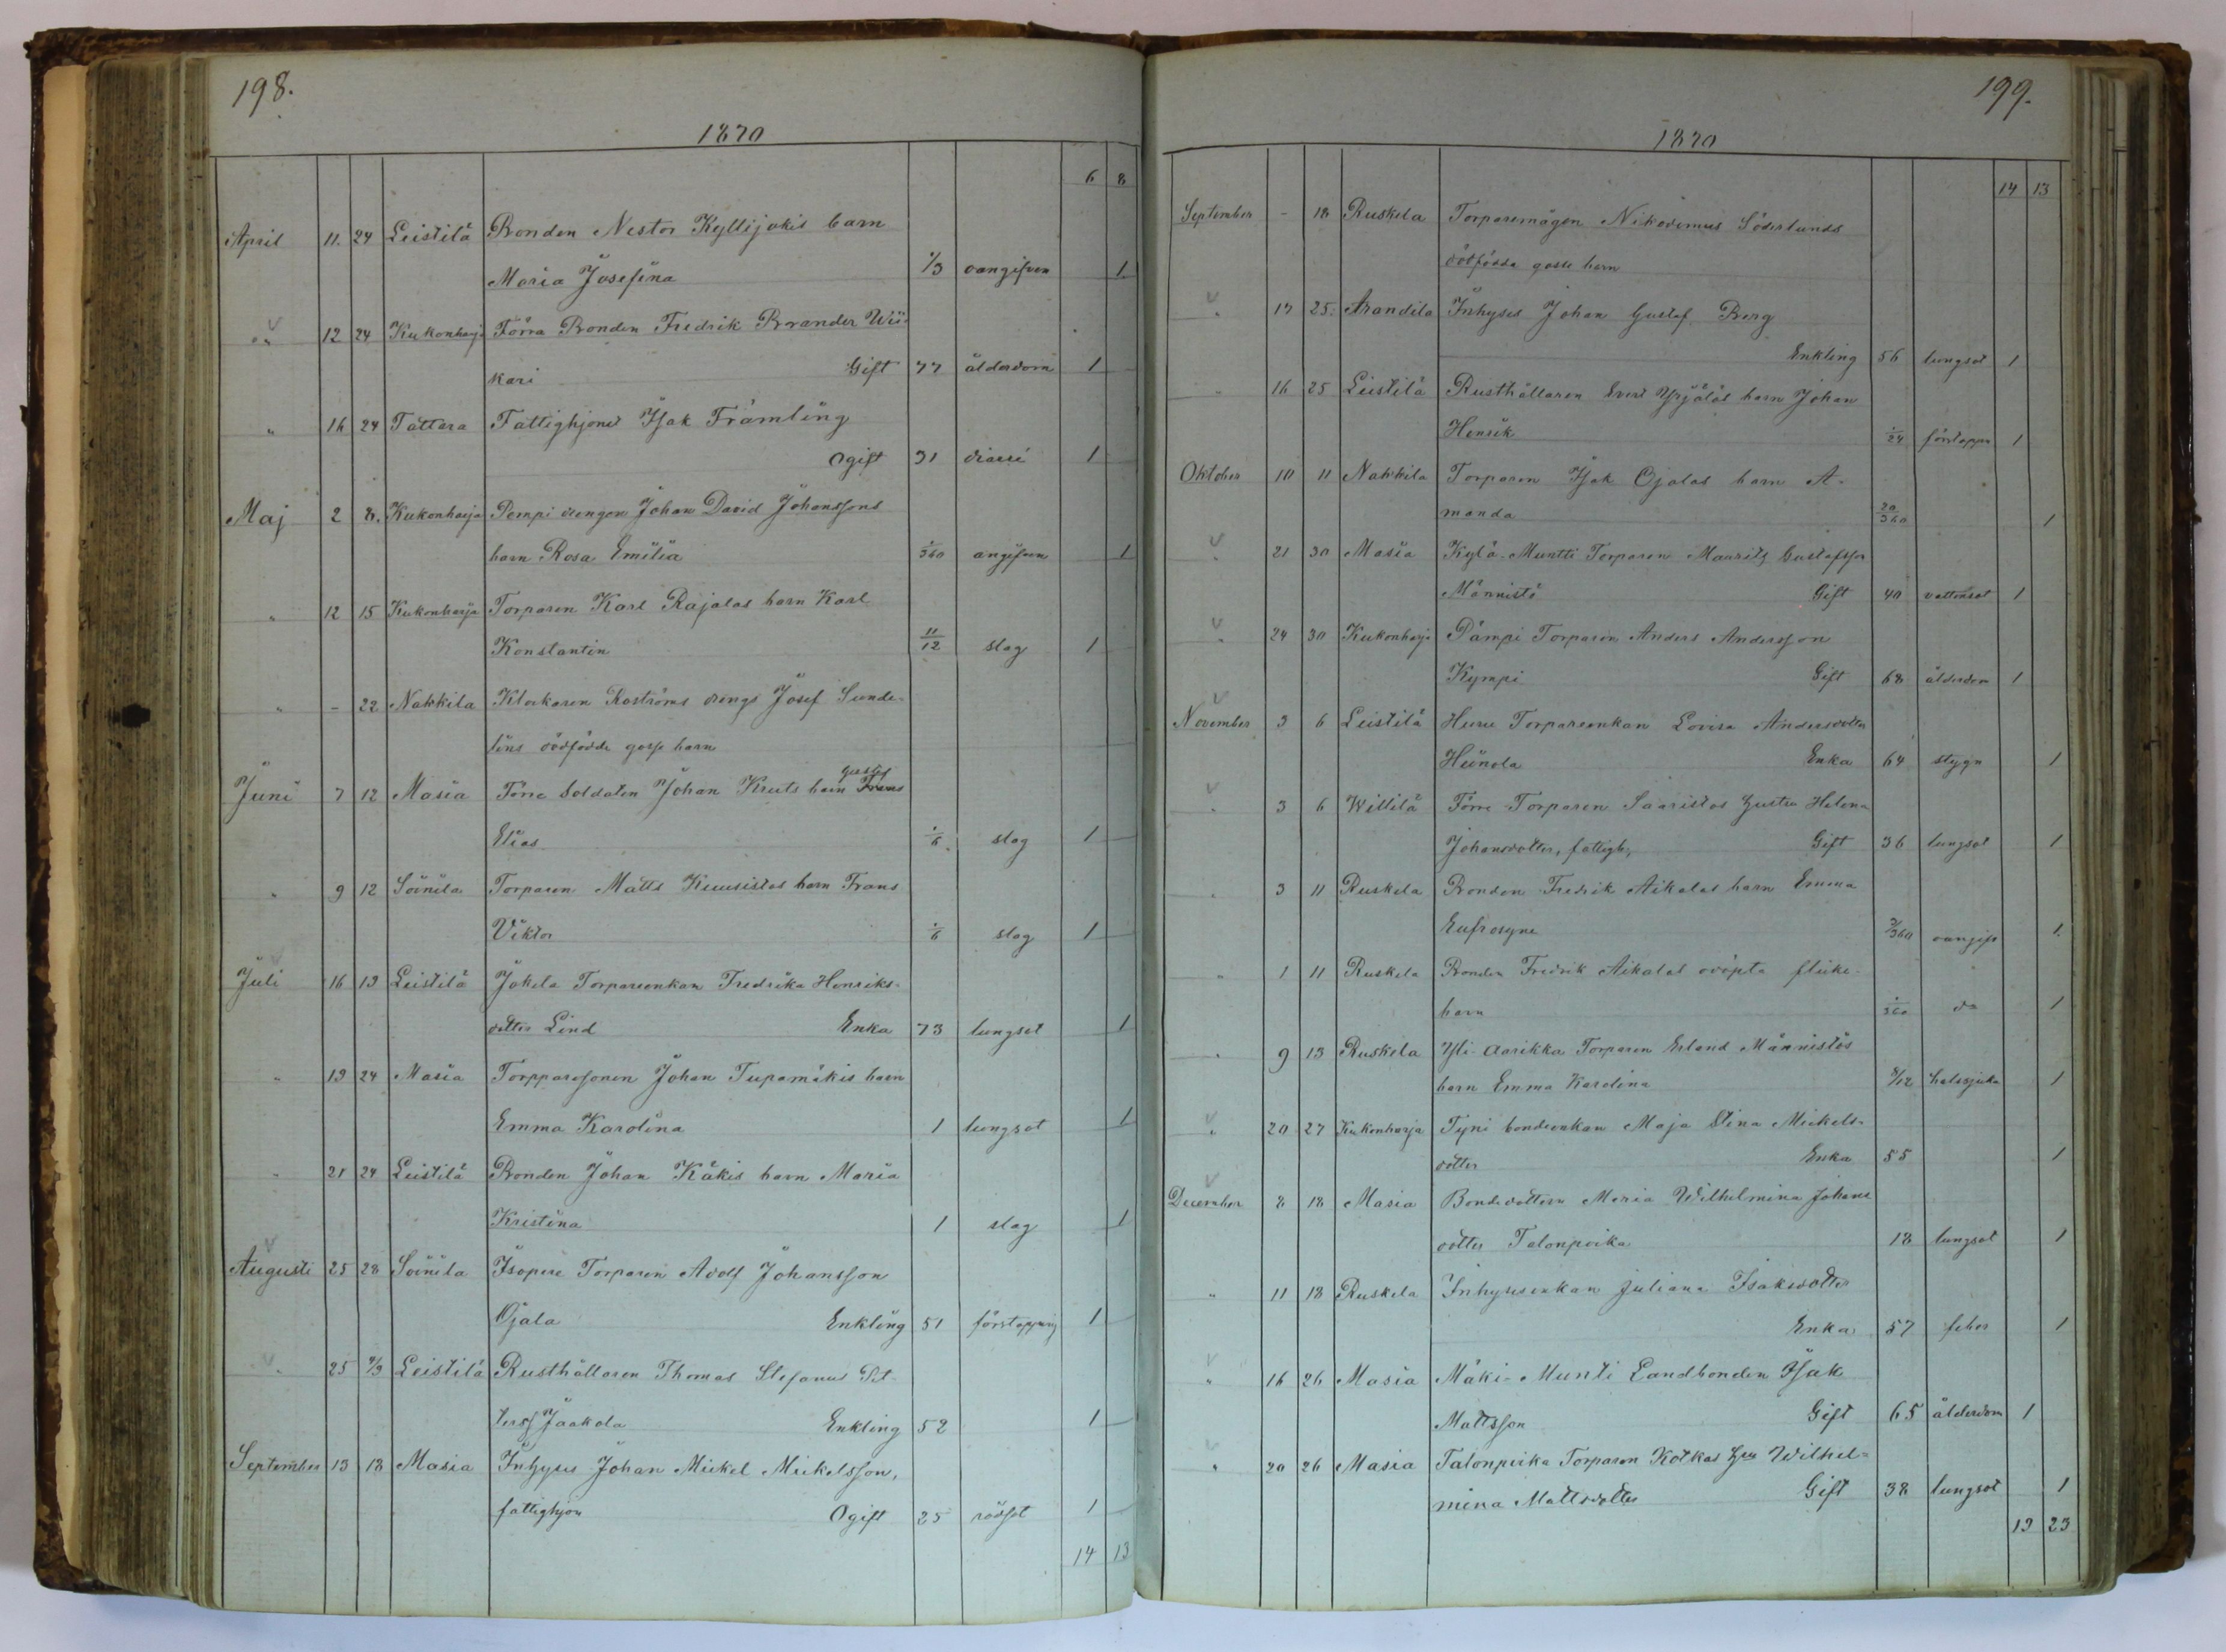 198.
1870
6 8
April 11. 24 Leistilä Bonden Nestor Kyllijokis barn
Maria Josefina 1/3 oangifven 1
" 12 24 Kukonharja Förra Bonden Fredrik Brander Wii-
kari Gift 77 ålderdom 1
" 16 24 Tattara Fattighjonet Isak Främling
Ogift 31 diarré 1
Maj 2 8. Kukonharja Pempi drengen Johan David Johanssons
barn Rosa Emilia 1/360 angifven 1
" 12 15 Kukonharja Torparen Karl Rajalas barn Karl
Konstantin 11/12 slag 1
" - 22 Nakkila Klockaren Roströms drengs Josef Sunde-
lins dödfödde gosse barn
Juni 7 12 Masia Förre Soldaten Johan Kruts barn Frans gustaf
Elias 1/6 slag 1
" 9 12 Soinila Torparen Matts Kuusistos barn Frans
Viktor 1/6 slag 1
Juli 16 19 Leistilä Jakola Torpareenkan Fredrika Henriks-
dotter Lind Enka 73 lungsot 1
" 19 24 Masia Torpparesonen Johan Tupamäkis barn
Emma Karolina 1 lungsot 1
" 21 24 Leistilä Bonden Johan Käkis barn Maria
Kristina 1 slag 1
Augusti 25 28 Soinila Isopere Torparen Adolf Johansson
Ojala Enkling 51 förstoppning 1
" 25 4/9 Leistilä Rusthållaren Thomas Stefanus Pet-
terss Jaakola Enkling 52 1
September 13 18 Masia Inhyses Johan Mickel Mickelsson,
fattighjon Ogift 25 rödsot 1
14 13
199.
1870
14 13
September - 18 Ruskela Torparemågen Nikodemus Söderlunds
dödfödda gosse barn
" 17 25 Arandila Inhyses Johan Gustaf Berg
Enkling 56 lungsot 1
" 16 25 Leistilä Rusthållaren Evert Yrjöläs barn Johan
Henrik 1/24 förstoppn 1
Oktober 10 11 Nakkila Torparen Isak Ojalas barn A-
manda 20/360 1
" 21 30 Masia Kylä-Muntti Torparen Maurits Gustafsson
Männistö Gift 40 vattensot 1
" 24 30 Kukonharja Pämpi Torparen Anders Andersson
Kympi Gift 68 ålderdom 1
November 3 6 Leistilä Huru Torpareenkan Lovisa Andersdotter
Heinola Enka 64 stygn 1
" 3 6 Willilä Förre Torparen Saaristos hustru Helena
Johansdotter, fattigh, Gift 36 lungsot 1
" 3 11 Ruskela Bonden Fredrik Aikalas barn Emma
Eufrosyne 3/360 oangif 1
" 1 11 Ruskela Bonden Fredrik Aikalas odöpta flicke-
barn 1/360 do 1
" 9 13 Ruskela Yli-Aarikka Torparen Erland Männistös
barn Emma Karolina 8/12 halssjuka 1
" 20 27 Kukonharja Tyni bondeenkan Maja Stina Mickels-
dotter Enka 55 1
December 8 18 Masia Bondedottern Maria Wilhelmina Johans
dotter Talonpoika 18 lungsot 1
" 11 18 Ruskela Inhysesenkan Juliana Isaksdotter
Enka 57 feber 1
" 16 26 Masia Mäki-Muntti Landbonden Isak
Mattsson Gift 65 ålderdom 1
" 20 26 Masia Talonpoika Torparen Kotkas hru Wilhel-
mina Mattsdotter Gift 38 lungsot 1
19 23